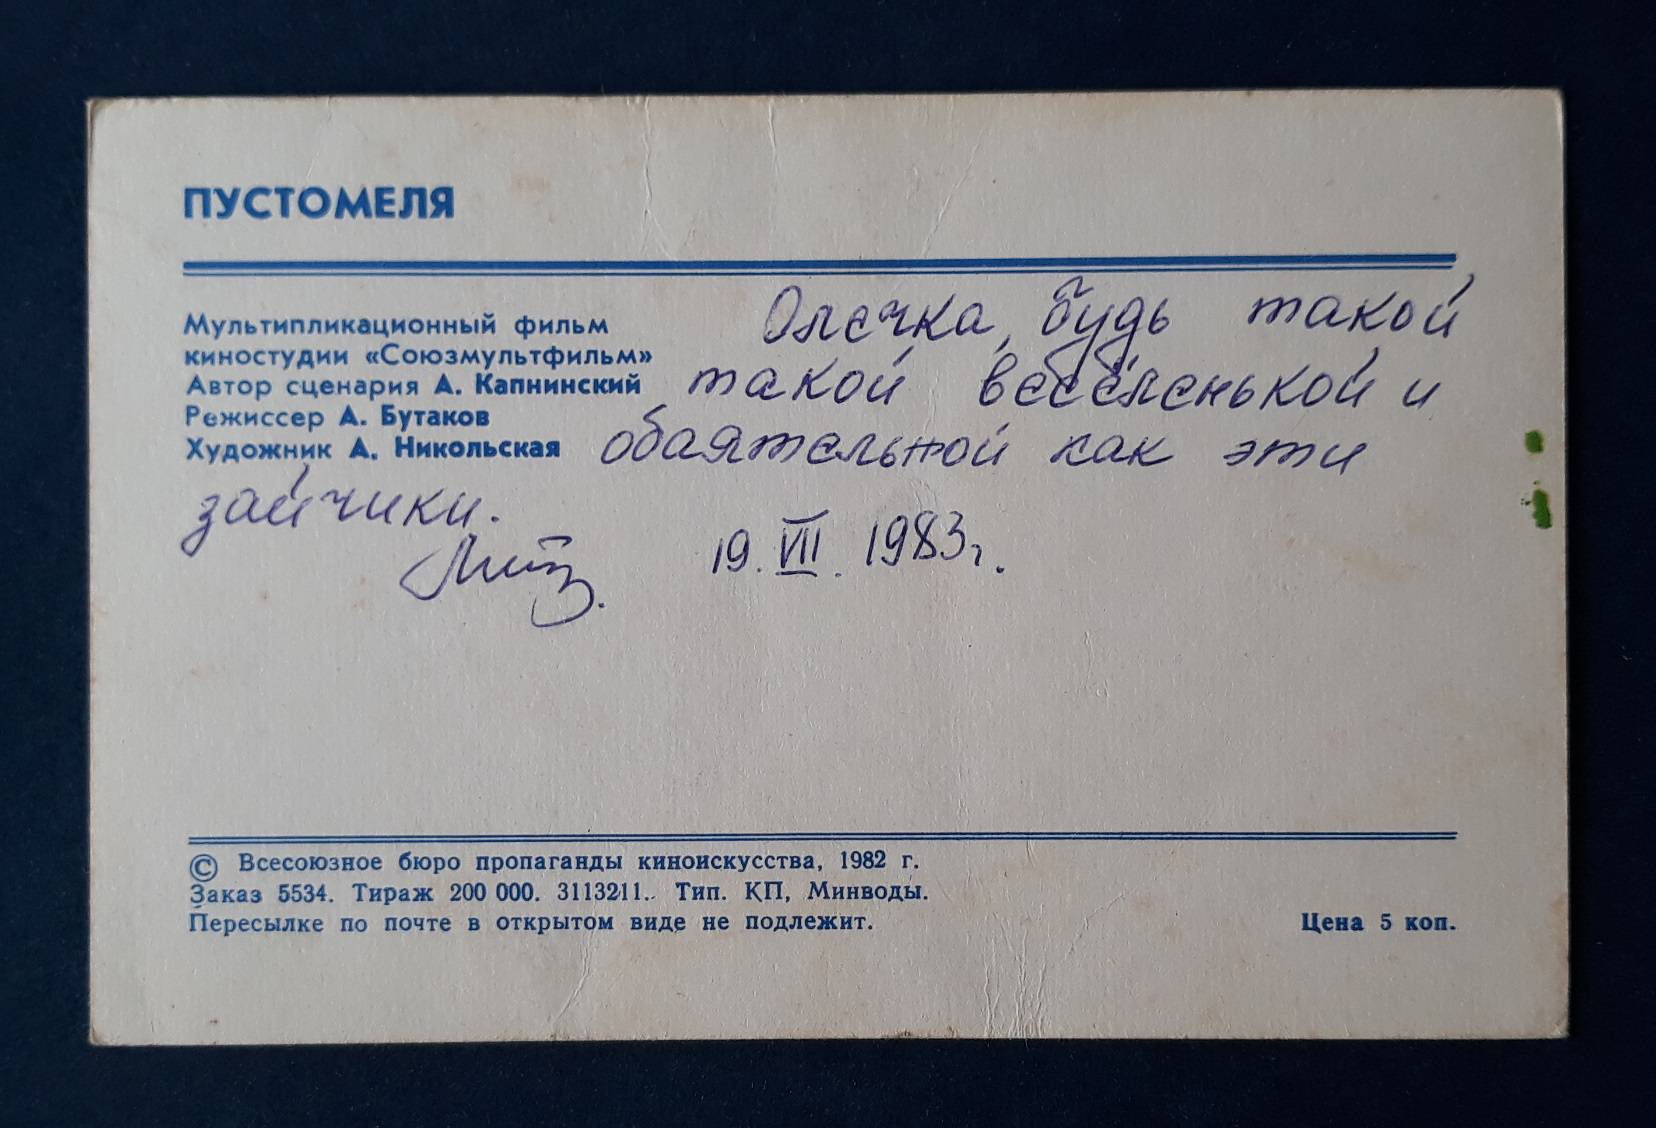 ПУСТОМЕЛЯ
Мультипликационный фильм
киностудии «Союзмультфильм»
Автор сценария А. Капнинский
Режиссер А. Бутаков
Художник А. Никольская
Олечка, будь такой
такой весёленькой и
обаятельной как эти
зайчики.
19. VII. 1983г.
© Всесоюзное бюро пропаганды киноискусства, 1982 г.
Заказ 5534. Тираж 200 000. 3113211.. Тип. КП, Минводы.
Пересылке по почте в открытом виде не подлежит.
Цена 5 коп.